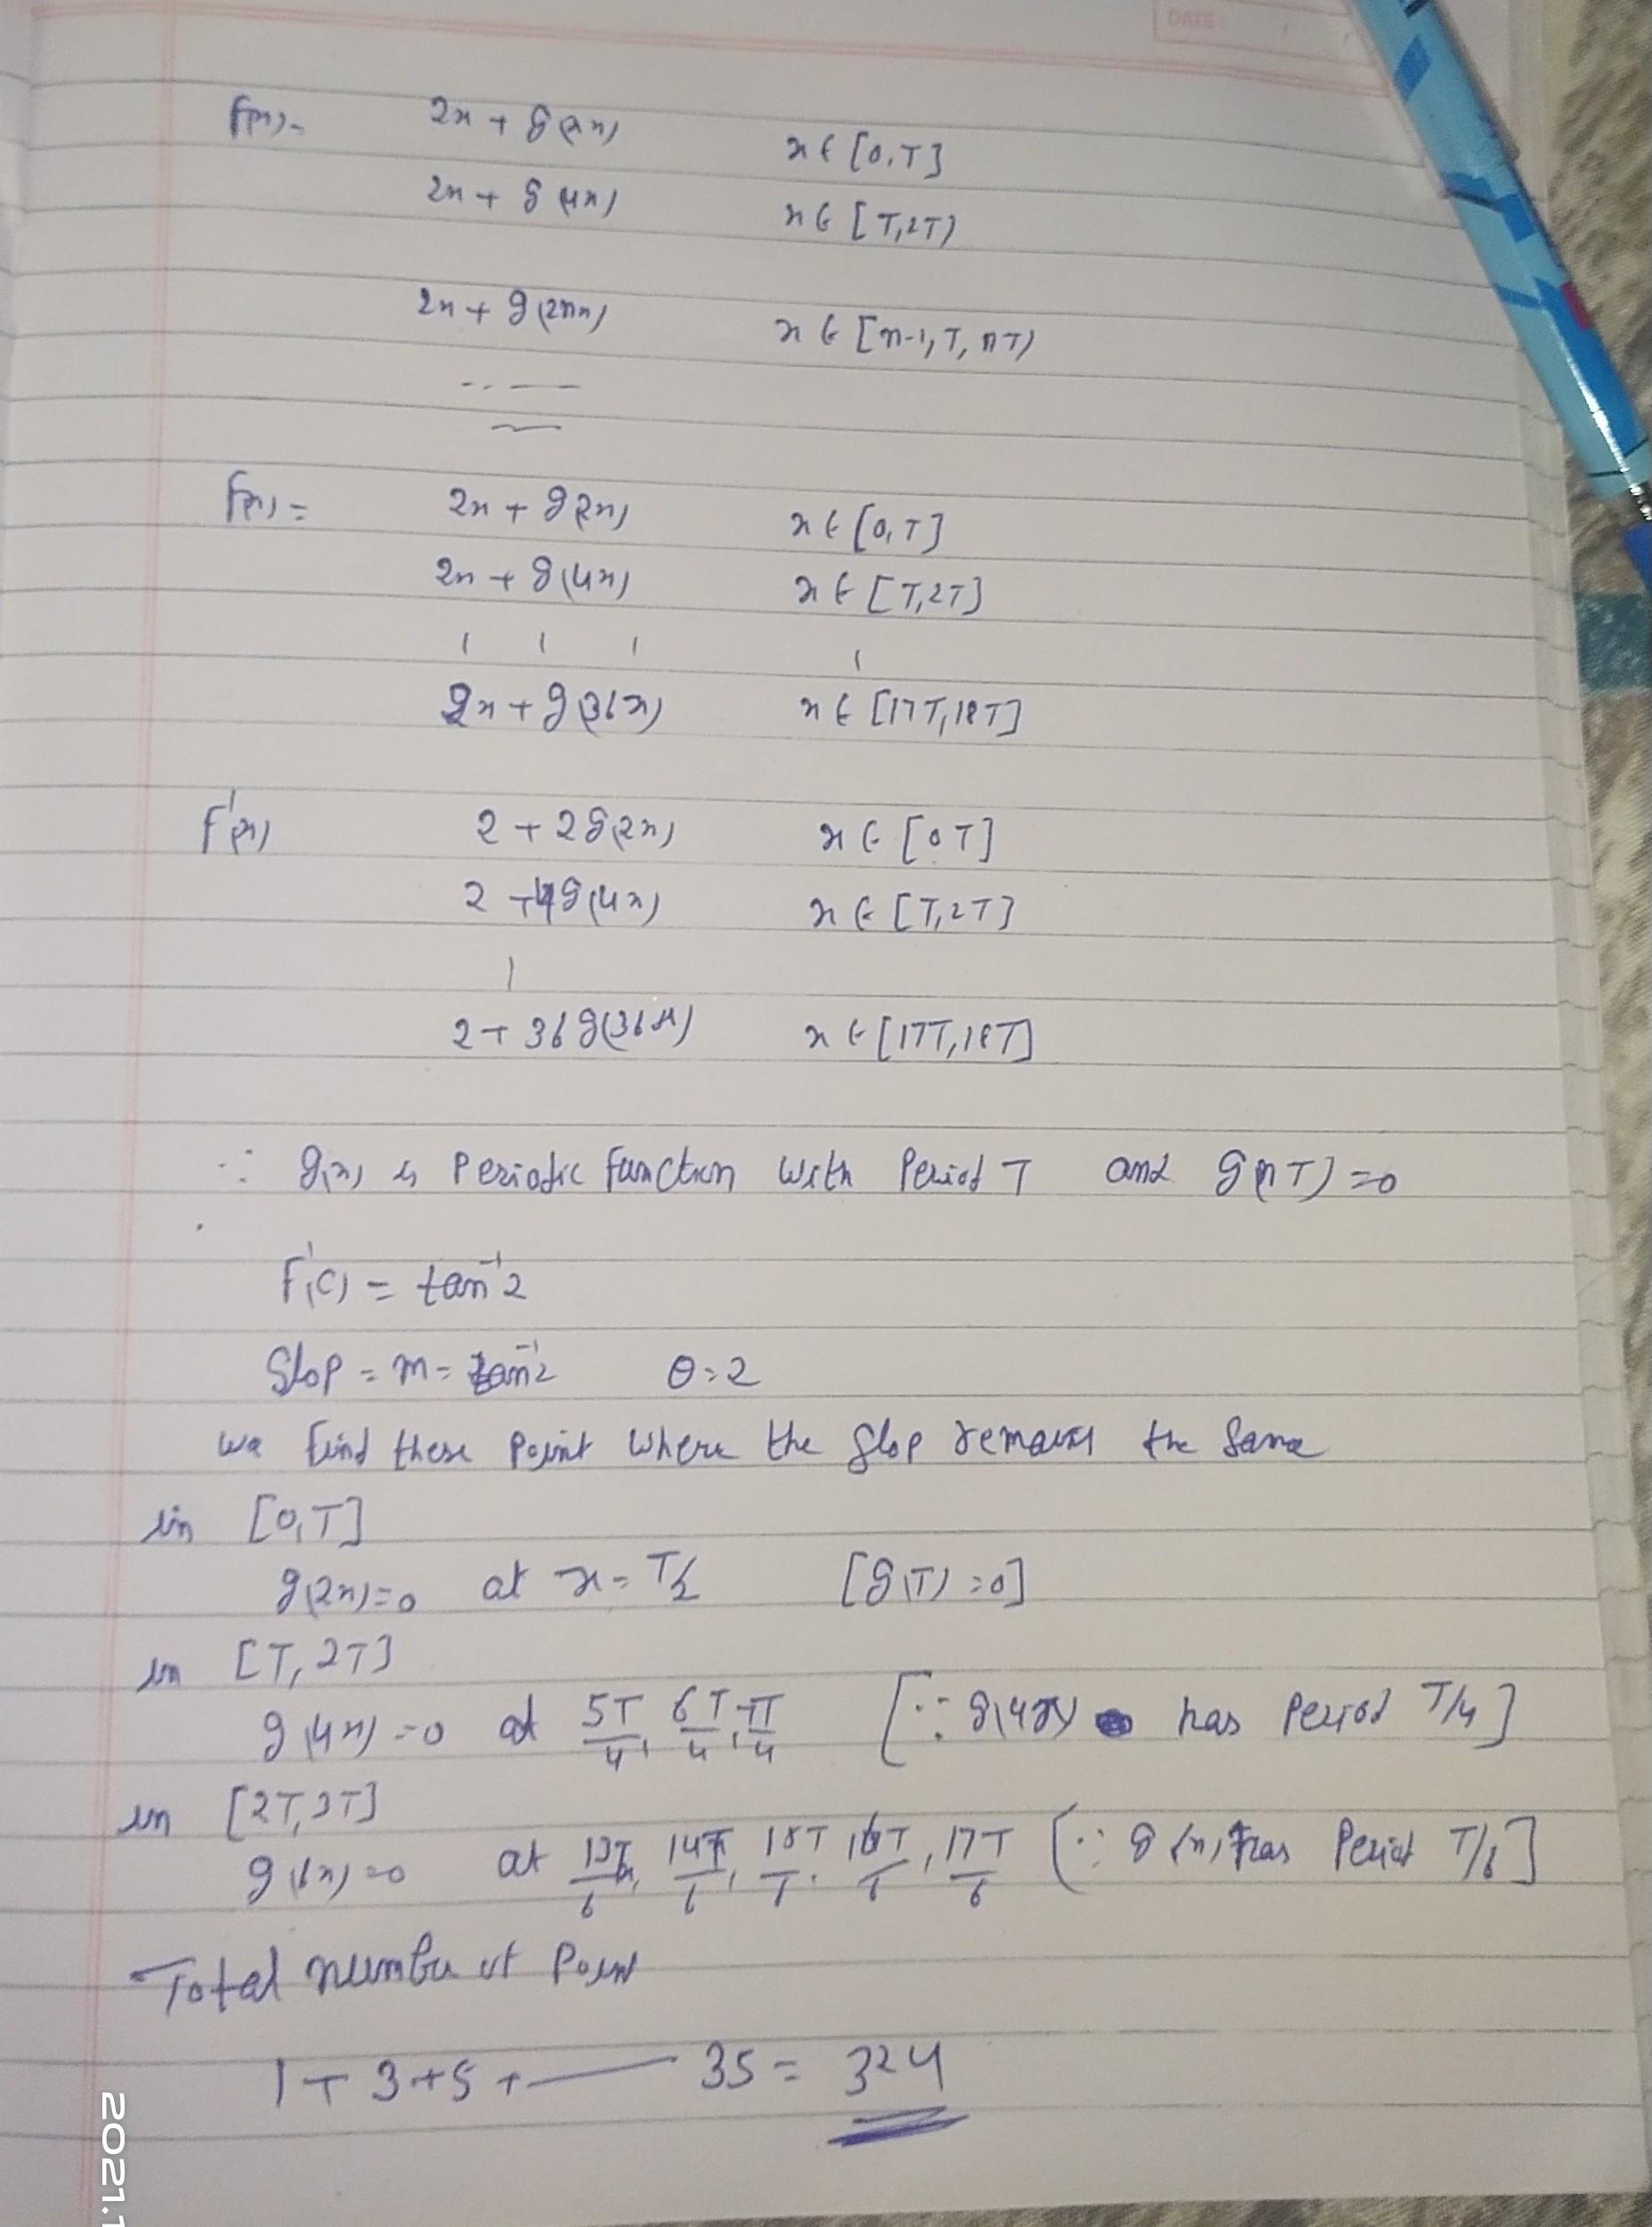 DATE
F(x)- 2x + g(2x) x ∈ [0,T]
2x + g(4x) x ∈ [T,2T)
2x + g(2nx) x ∈ [n-1,T, nT)
F(x) = 2x + g(2x) x ∈ [0,T]
2x + g(4x) x ∈ [T,2T]
2x + g(36x) x ∈ [17T,18T]
F'(x) 2 + 2g(2x) x ∈ [0 T]
2 + 4g(4x) x ∈ [T,2T]
2 + 36g(36x) x ∈ [17T,18T]
∵ g(x) is Periodic Function With Period T and g(nT)=0
F'(c) = tan⁻¹2
Slop = m = tan⁻¹2 θ = 2
we find these point where the slop remains the same
in [0,T]
g(2x)=0 at x = T/2 [g(T)=0]
in [T,2T]
g(4x)=0 at 5T/4, 6T/4, 7T/4 [∵ g(4x) has Period T/4]
in [2T,3T]
g(6x)=0 at 13T/6, 14T/6, 15T/6, 16T/6, 17T/6 [∵ g(x) has Period T/6]
Total number of Point
1 + 3 + 5 + — 35 = 324
2021.1